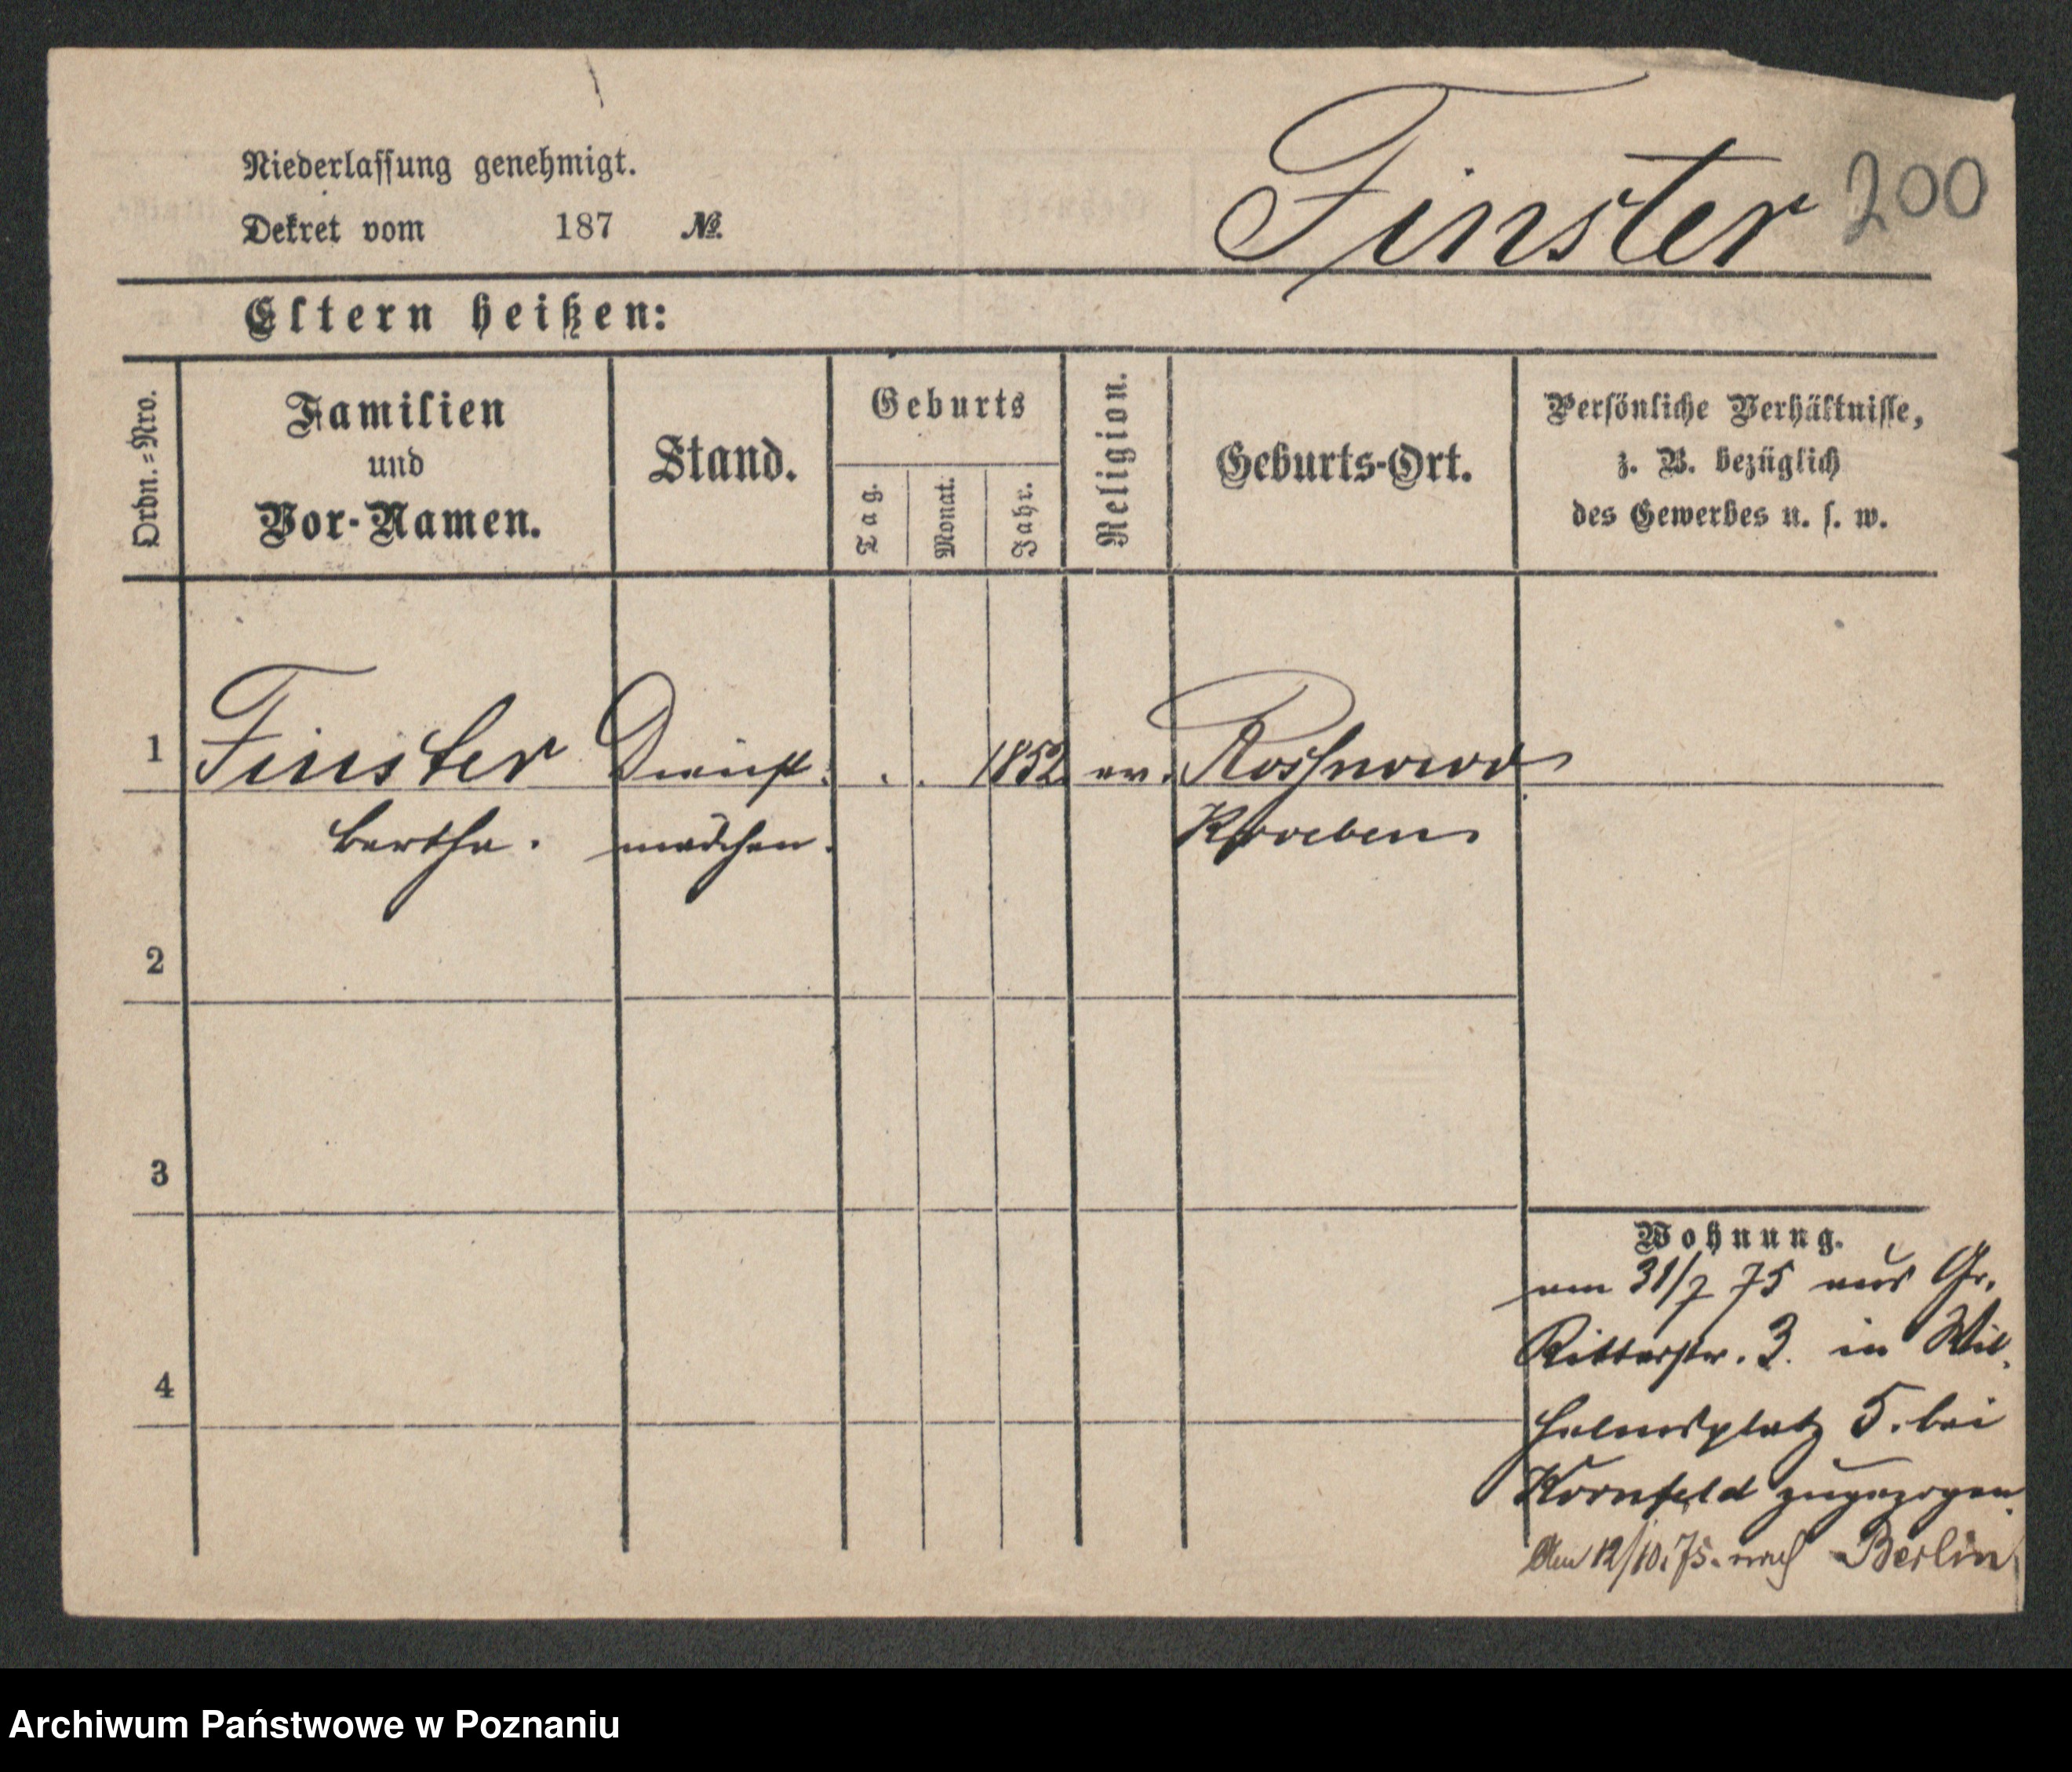 Niederlassung genehmigt.
Dekret vom 187 №.
Finster 200
Eltern heißen:
Ordn.=Nro.
Familien
und
Vor-Namen.
Stand.
Geburts
Tag.
Monat.
Jahr.
Religion.
Geburts-Ort.
Persönliche Verhältnisse,
z. B. bezüglich
des Gewerbes u. s. w.
1 Finster Dienst . . 1852 ev. Roschnowo
Bertha. mädchen. Kroeben
2
3
4
Wohnung.
am 31/7 75 aus Gr.
Ritterstr. 3. in Wil
helmsplatz 5. bei
Kornfeld zugezogen
Am 12/10.75. nach Berlin
Archiwum Państwowe w Poznaniu